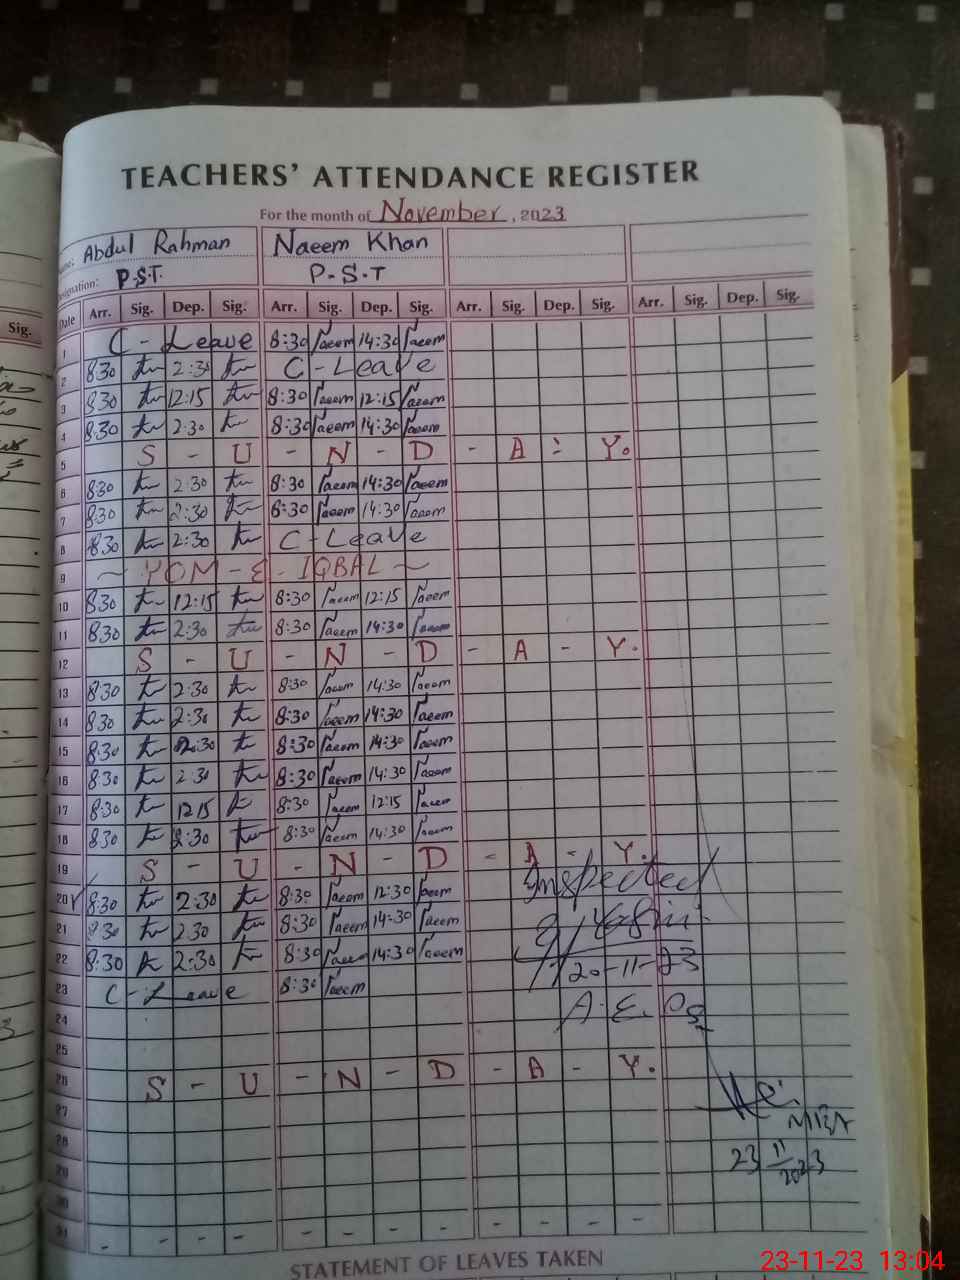 TEACHERS' ATTENDANCE REGISTER
For the month of November, 2023
Name: Abdul Rahman Naeem Khan
Designation: P.S.T. P-S-T
Date Arr. Sig. Dep. Sig. Arr. Sig. Dep. Sig. Arr. Sig. Dep. Sig. Arr. Sig. Dep. Sig.
Sig.
1 C - Leave 8:30 Naeem 14:30 Naeem
2 830 2:30 C - Leave
3 830 12:15 8:30 Naeem 12:15 Naeem
4 8:30 2:30 8:30 Naeem 14:30 Naeem
5 S - U - N - D - A - Y.
6 8:30 2:30 8:30 Naeem 14:30 Naeem
7 8:30 2:30 8:30 Naeem 14:30 Naeem
8 8:30 2:30 C - Leave
9 ~ YOM - E - IQBAL ~
10 8:30 12:15 8:30 Naeem 12:15 Naeem
11 8:30 2:30 8:30 Naeem 14:30 Naeem
12 S - U - N - D - A - Y.
13 8:30 2:30 8:30 Naeem 14:30 Naeem
14 8:30 2:30 8:30 Naeem 14:30 Naeem
15 8:30 2:30 8:30 Naeem 14:30 Naeem
16 8:30 2:30 8:30 Naeem 14:30 Naeem
17 8:30 12:15 8:30 Naeem 12:15 Naeem
18 8:30 2:30 8:30 Naeem 14:30 Naeem
19 S - U - N - D - A - Y.
20 8:30 2:30 8:30 Naeem 12:30 Naeem
Inspected
21 8:30 2:30 8:30 Naeem 14:30 Naeem
22 8:30 2:30 8:30 Naeem 14:30 Naeem
20-11-23
23 C - Leave 8:30 Naeem
24
A.E.O
25
26 S - U - N - D - A - Y.
27
28
23 11 2023
29
30
31 - - - - - - - - - - - -
STATEMENT OF LEAVES TAKEN
23-11-23 13:04